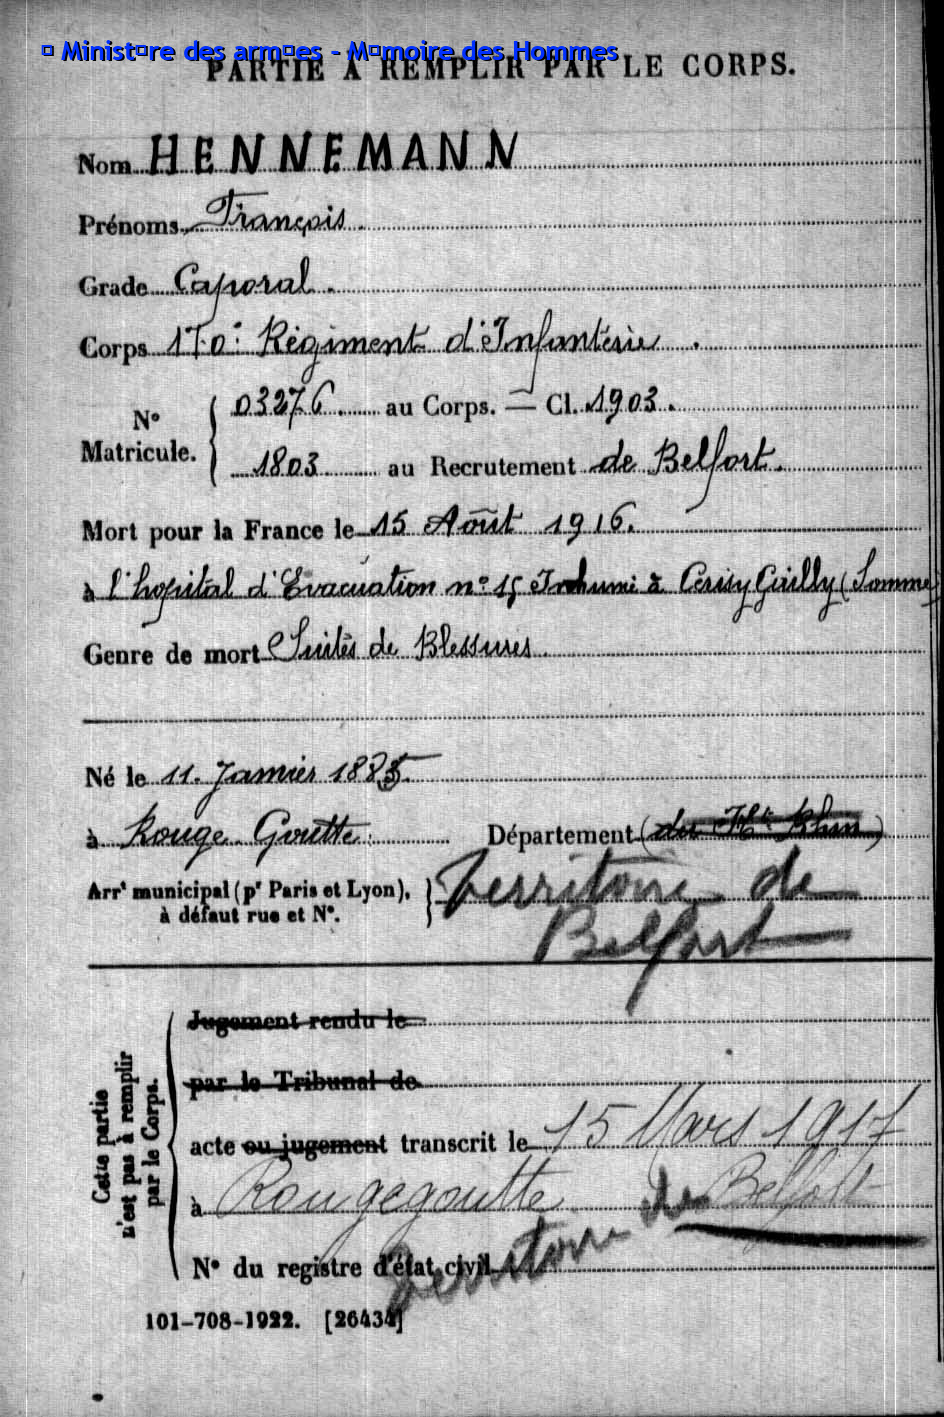 © Ministère des armées - Mémoire des Hommes
PARTIE À REMPLIR PAR LE CORPS.
Nom HENNEMANN
Prénoms François.
Grade Caporal.
Corps 170e Régiment d'Infanterie.
N° Matricule. { 03276 au Corps. — Cl. 1903.
1803 au Recrutement de Belfort.
Mort pour la France le 15 Août 1916.
à l'hopital d'Evacuation n° 15 Inhumé à Cerisy Gailly (Somme)
Genre de mort Suites de Blessures
Né le 11. Janvier 1883.
à Rouge Goutte. Département (du Ht Rhin)
Arrt municipal (pr Paris et Lyon), à défaut rue et N°. } Territoire de
Belfort
Cette partie n'est pas à remplir par le Corps.
Jugement rendu le
par le Tribunal de
acte ou jugement transcrit le 15 Mars 1917
à Rougegoutte Belfort
N° du registre d'état civil
Territoire de
101-708-1922. [26434]